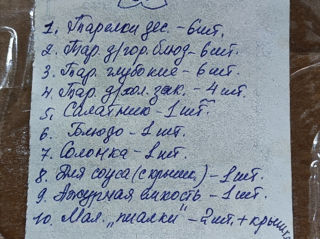 1. Тарелки дес. - 6 шт.
2. Тар. д/гор. блюд - 6 шт.
3. Тар. глубокие - 6 шт.
4. Тар. д/хол. зак. - 4 шт.
5. Салатник - 1 шт.
6. Блюдо - 1 шт.
7. Солонка - 1 шт.
8. Для соуса (с крышк.) - 1 шт.
9. Ажурная емкость - 1 шт.
10. Мал. "пиалки" - 2 шт. + крышк